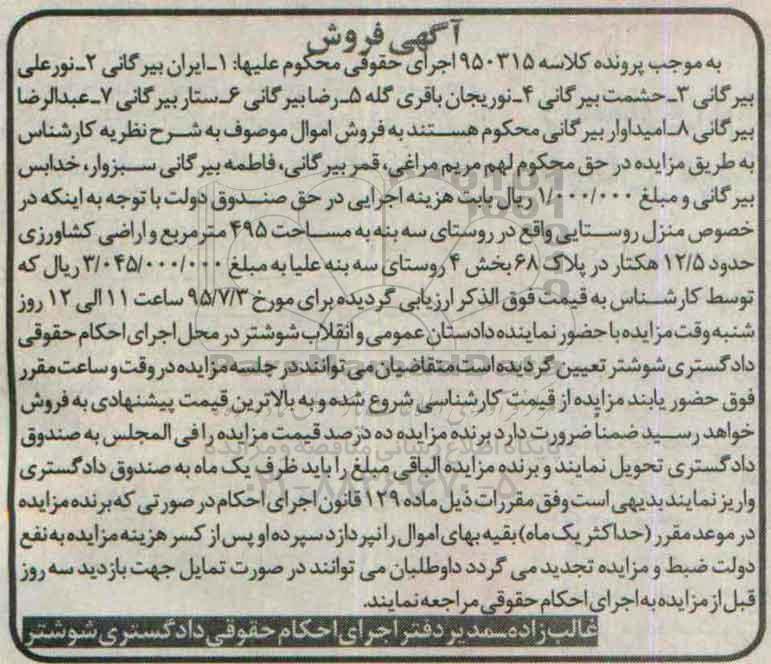 آگهی فروش
به موجب پرونده کلاسه ۹۵۰۳۱۵ اجرای حقوقی محکوم علیها: ۱ـ ایران بیرگانی ۲ـ نورعلی
بیرگانی ۳ـ حشمت بیرگانی ۴ـ نوریجان باقری گله ۵ـ رضا بیرگانی ۶ـ ستار بیرگانی ۷ـ عبدالرضا
بیرگانی ۸ـ امیداوار بیرگانی محکوم هستند به فروش اموال موصوف به شرح نظریه کارشناس
به طریق مزایده در حق محکوم لهم مریم مراغی، قمر بیرگانی، فاطمه بیرگانی سبزوار، خدابس
بیرگانی و مبلغ ۱/۰۰۰/۰۰۰ ریال بابت هزینه اجرایی در حق صندوق دولت با توجه به اینکه در
خصوص منزل روستایی واقع در روستای سه بنه به مساحت ۴۹۵ مترمربع و اراضی کشاورزی
حدود ۱۲/۵ هکتار در پلاک ۶۸ بخش ۴ روستای سه بنه علیا به مبلغ ۳/۰۴۵/۰۰۰/۰۰۰ ریال که
توسط کارشناس به قیمت فوق الذکر ارزیابی گردیده برای مورخ ۹۵/۷/۳ ساعت ۱۱ الی ۱۲ روز
شنبه وقت مزایده با حضور نماینده دادستان عمومی و انقلاب شوشتر در محل اجرای احکام حقوقی
دادگستری شوشتر تعیین گردیده است متقاضیان می توانند در جلسه مزایده در وقت و ساعت مقرر
فوق حضور یابند مزایده از قیمت کارشناسی شروع شده و به بالاترین قیمت پیشنهادی به فروش
خواهد رسید ضمنا ضرورت دارد برنده مزایده ده درصد قیمت مزایده را فی المجلس به صندوق
دادگستری تحویل نمایند و برنده مزایده الباقی مبلغ را باید ظرف یک ماه به صندوق دادگستری
واریز نمایند بدیهی است وفق مقررات ذیل ماده ۱۲۹ قانون اجرای احکام در صورتی که برنده مزایده
در موعد مقرر (حداکثر یک ماه) بقیه بهای اموال را نپردازد سپرده او پس از کسر هزینه مزایده به نفع
دولت ضبط و مزایده تجدید می گردد داوطلبان می توانند در صورت تمایل جهت بازدید سه روز
قبل از مزایده به اجرای احکام حقوقی مراجعه نمایند.
غالب زاده ـ مدیر دفتر اجرای احکام حقوقی دادگستری شوشتر